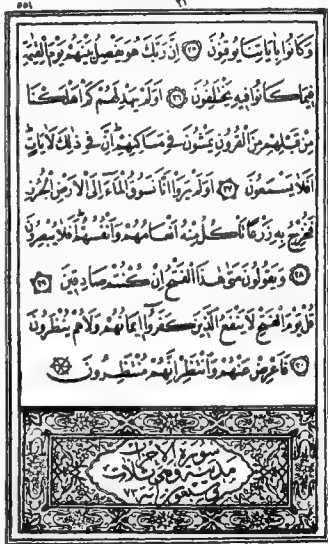 ٥٥٤ ٢١
وَكَانُوا بِاٰيَاتِنَا يُوقِنُونَ ﴿٢٤﴾ اِنَّ رَبَّكَ هُوَ يَفْصِلُ بَيْنَهُمْ يَوْمَ الْقِيٰمَةِ
فِيمَا كَانُوا فِيهِ يَخْتَلِفُونَ ﴿٢٥﴾ اَوَلَمْ يَهْدِ لَهُمْ كَمْ اَهْلَكْنَا
مِنْ قَبْلِهِمْ مِنَ الْقُرُونِ يَمْشُونَ فِي مَسَاكِنِهِمْ اِنَّ فِي ذٰلِكَ لَاٰيَاتٍ
اَفَلَا يَسْمَعُونَ ﴿٢٦﴾ اَوَلَمْ يَرَوْا اَنَّا نَسُوقُ الْمَٓاءَ اِلَى الْاَرْضِ الْجُرُزِ
فَنُخْرِجُ بِهِ زَرْعًا تَأْكُلُ مِنْهُ اَنْعَامُهُمْ وَاَنْفُسُهُمْ اَفَلَا يُبْصِرُونَ
﴿٢٧﴾ وَيَقُولُونَ مَتٰى هٰذَا الْفَتْحُ اِنْ كُنْتُمْ صَادِقِينَ ﴿٢٨﴾
قُلْ يَوْمَ الْفَتْحِ لَا يَنْفَعُ الَّذِينَ كَفَرُٓوا اِيمَانُهُمْ وَلَا هُمْ يُنْظَرُونَ
﴿٢٩﴾ فَاَعْرِضْ عَنْهُمْ وَانْتَظِرْ اِنَّهُمْ مُنْتَظِرُونَ
سورة الاحزاب
مدنية وهي ثلاث
وسبعون آية ٧٣